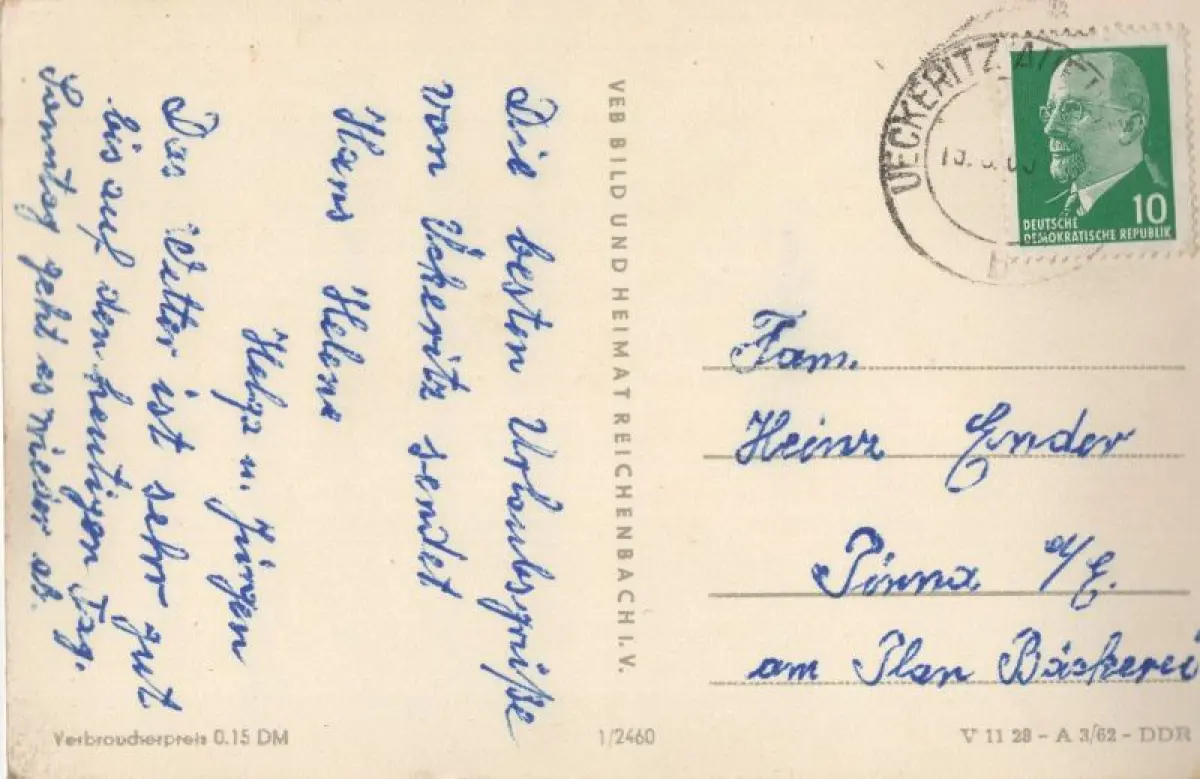 Die besten Urlaubsgrüße
von Ückeritz sendet
Hans Helene
Helga u. Jürgen
Das Wetter ist sehr gut
bis auf den heutigen Tag.
Sonntag geht es wieder ab.
VEB BILD UND HEIMAT REICHENBACH I. V.
UECKERITZ
10
DEUTSCHE
DEMOKRATISCHE REPUBLIK
Fam.
Heinz Ender
Pirna a/E.
am Plan Bäckerei
Verbraucherpreis 0.15 DM
1/2460
V 11 28 - A 3/62 - DDR